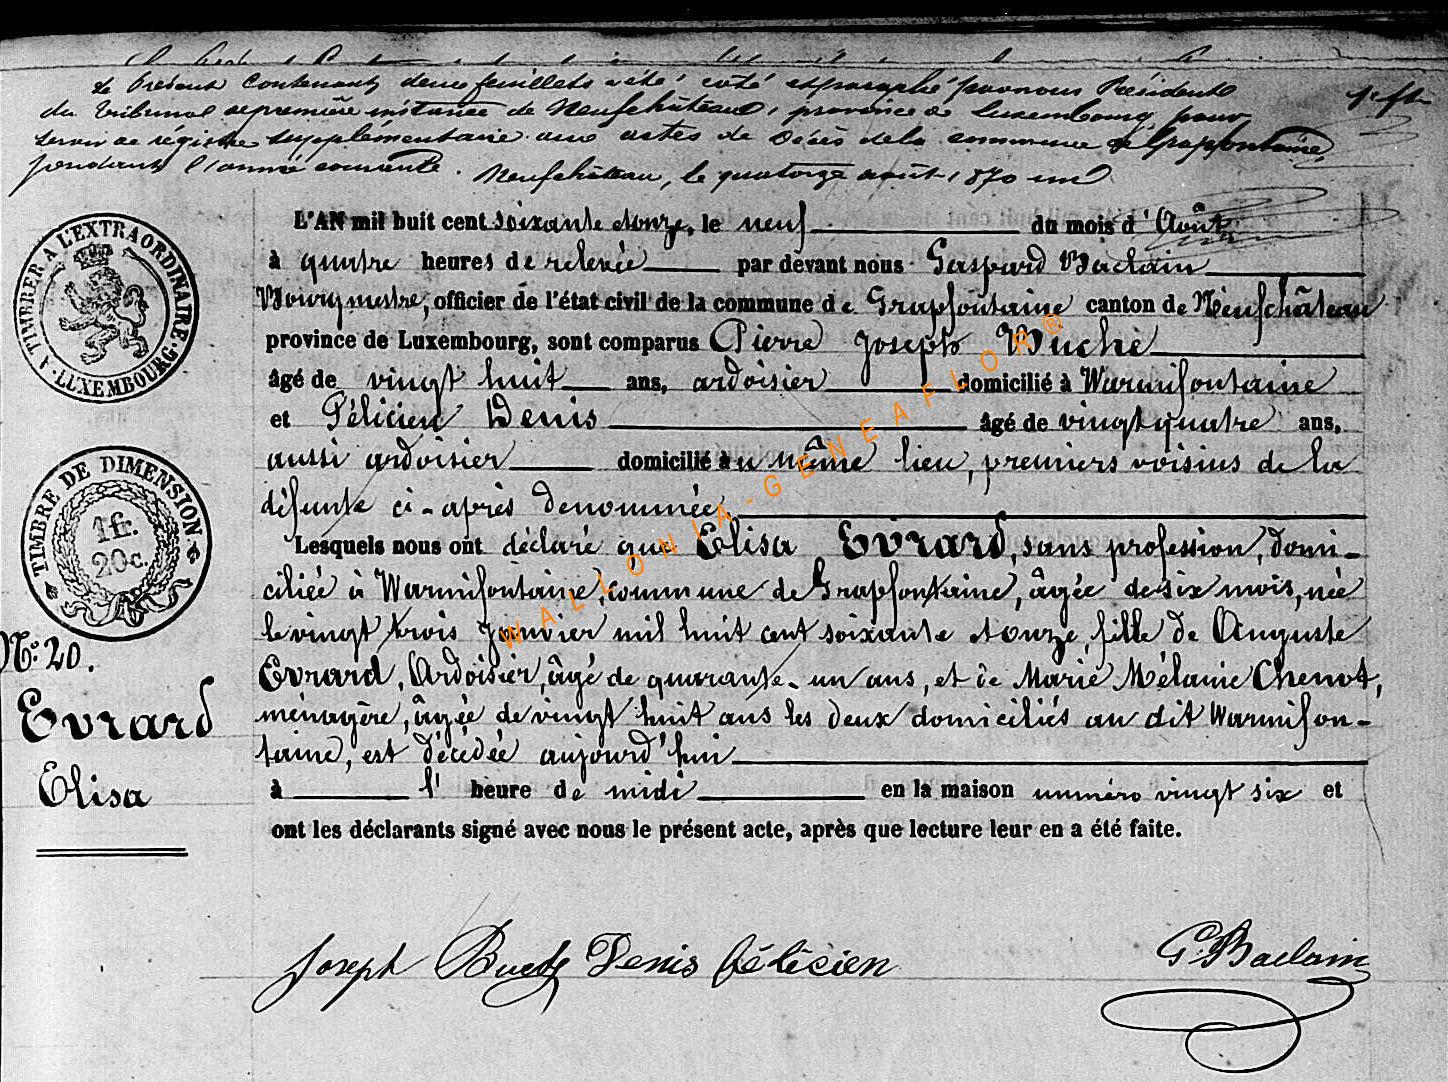 Le Présent Contenant deux feuillets a été coté et paraphé par nous Président
du Tribunal de première instance de Neufchâteau, province de Luxembourg pour
servir de régistre supplémentaire aux actes de Décès de la commune de Grapfontaine,
pendant l'année courante. Neufchâteau, le quatorze août 1870 un
TIMBRER A L'EXTRAORDINAIRE
LUXEMBOURG
TIMBRE DE DIMENSION
1 fr.
20 c.
N.º 20.
Evrard
Elisa
L'AN mil huit cent soixante et onze, le neuf du mois d'Août
à quatre heures de relevée par devant nous Gaspard Baclain
Bourgmestre, officier de l'état civil de la commune de Grapfontaine canton de Neufchâteau
province de Luxembourg, sont comparus Pierre Joseph Buché
âgé de vingt huit ans, ardoisier domicilié à Warmifontaine
et Félicien Denis âgé de vingt quatre ans,
aussi ardoisier domicilié au même lieu, premiers voisins de la
défunte ci-après denommée
Lesquels nous ont déclaré que Elisa Evrard, sans profession, domi-
ciliée à Warmifontaine, commune de Grapfontaine, âgée de six mois, née
le vingt trois Janvier mil huit cent soixante et onze, fille de Auguste
Evrard, Ardoisier, âgé de quarante-un ans, et de Marie Mélanie Chenot,
ménagère, âgée de vingt huit ans les deux domiciliés au dit Warmifon-
taine, est décédée aujourd'hui
à l' heure de midi en la maison numéro vingt six et
ont les déclarants signé avec nous le présent acte, après que lecture leur en a été faite.
Joseph Buché Denis félicien G. Baclain
WALLONIA-GENEAFLOR®